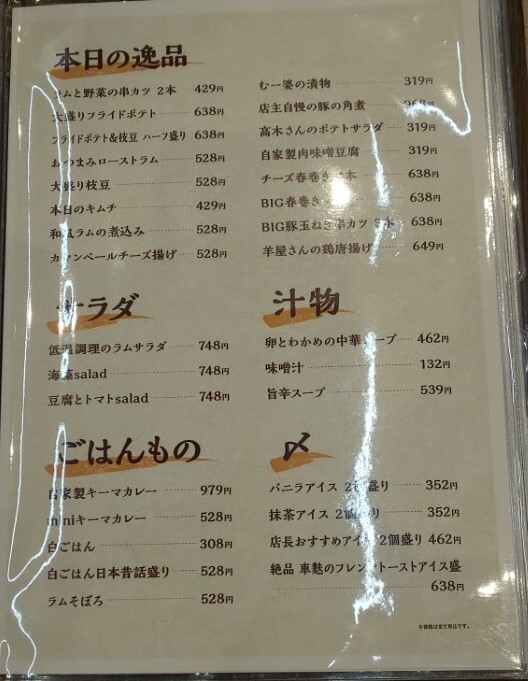 本日の逸品
ラムと野菜の串カツ 2本 429円
大盛りフライドポテト 638円
フライドポテト&枝豆 ハーフ盛り 638円
おつまみローストラム 528円
大盛り枝豆 528円
本日のキムチ 429円
和風ラムの煮込み 528円
カマンベールチーズ揚げ 528円
むー婆の漬物 319円
店主自慢の豚の角煮
高木さんのポテトサラダ 319円
自家製肉味噌豆腐 319円
チーズ春巻き 本 638円
BIG春巻き 638円
BIG豚玉ねぎ串カツ 3本 638円
羊屋さんの鶏唐揚げ 649円
サラダ
低温調理のラムサラダ 748円
海藻salad 748円
豆腐とトマトsalad 748円
汁物
卵とわかめの中華スープ 462円
味噌汁 132円
旨辛スープ 539円
ごはんもの
自家製キーマカレー 979円
miniキーマカレー 528円
白ごはん 308円
白ごはん日本昔話盛り 528円
ラムそぼろ 528円
〆
バニラアイス 2個盛り 352円
抹茶アイス 2個盛り 352円
店長おすすめアイス 2個盛り 462円
絶品 車麩のフレンチトーストアイス盛
638円
※価格は全て税込です。